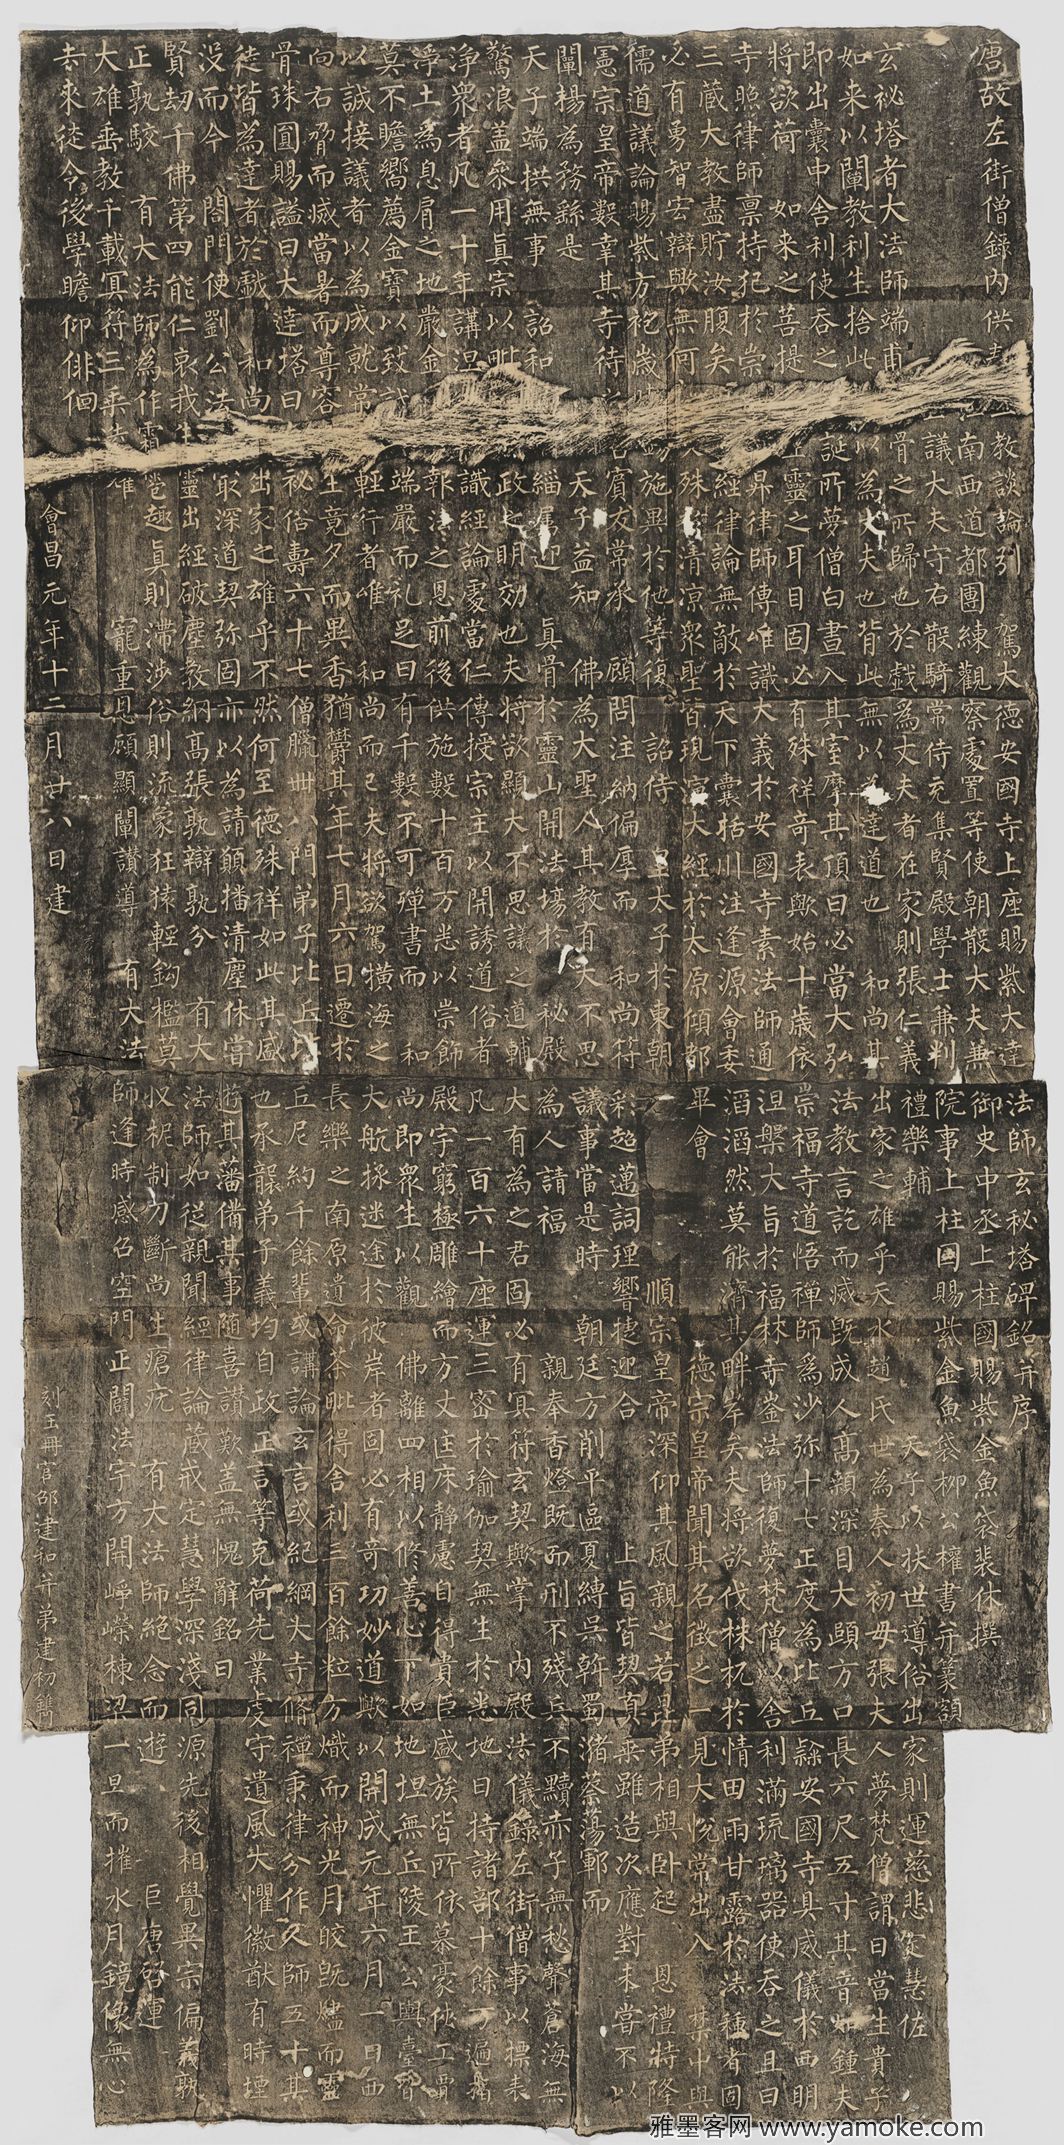 唐故左街僧錄內供 教談論引 駕大德安國寺上座賜紫大達法師玄秘塔碑銘并序
南西道都團練觀察處置等使朝散大夫兼御史中丞上柱國賜紫金魚袋裴休撰
議大夫守右散騎常侍充集賢殿學士兼判院事上柱國賜紫金魚袋柳公權書并篆額
玄祕塔者大法師端甫 骨之所歸也於戲為丈夫者在家則張仁義禮樂輔 天子以扶世導俗出家則運慈悲定慧佐
如来以闡教利生捨此 以為丈夫也背此無以為達道也 和尚其出家之雄乎天水趙氏世為秦人初母張夫人夢梵僧謂曰當生貴子
即出囊中舍利使吞之 誕所夢僧白晝入其室摩其頂曰必當大弘法教言訖而滅既成人高顙深目大頤方口長六尺五寸其音如鍾夫
將欲荷 如来之菩提 靈之耳目固必有殊祥奇表歟始十歲依崇福寺道悟禪師為沙弥十七正度為比丘隸安國寺具威儀於西明
寺照律師禀持犯於崇 昇律師傳唯識大義於安國寺素法師通涅槃大旨於福林寺崟法師復夢梵僧以舍利滿琉璃器使吞之且曰
三藏大教盡貯汝腹矣 經律論無敵於天下囊括川注逢源會委滔滔然莫能濟其畔岸矣夫將欲伐株杌於情田雨甘露於法種者固
必有勇智宏辯歟無何 殊 清涼眾聖皆現演大經於太原傾都畢會 德宗皇帝聞其名徵之一見大悅常出入 禁中與
儒道議論賜紫方袍歲 錫施異於他等復 詔侍 皇太子於東朝 順宗皇帝深仰其風親之若昆弟相與臥起 恩禮特隆
憲宗皇帝數幸其寺待 賓友常承 顧問注納偏厚而 和尚符彩超邁詞理響捷迎合 上旨皆契真乘雖造次應對未嘗不以
闡揚為務繇是 天子益知 佛為大聖人其教有大不思議事當是時 朝廷方削平區夏縛吳斡蜀瀦蔡蕩鄆而
天子端拱無事 詔和 緇屬迎 真骨於靈山開法場於 秘殿為人請福 親奉香燈既而刑不殘兵不黷赤子無愁聲蒼海無
驚浪盖參用真宗以毗 政之明効也夫將欲顯大不思議之道輔大有為之君固必有冥符玄契歟掌 內殿法儀錄左街僧事以標表
淨眾者凡一十年講涅 識經論處當仁傳授宗主以開誘道俗者凡一百六十座運三密於瑜伽契無生於悉地日持諸部十餘万遍指
淨土為息肩之地嚴金 報法之恩前後供施數十百万悉以崇飾殿宇窮極雕繪而方丈匡床靜慮自得貴臣盛族皆所依慕豪俠工賈
莫不瞻嚮薦金寶以致 端嚴而礼足日有千數不可殫書而 和尚即眾生以觀 佛離四相以修善心下如地坦無丘陵王公輿臺皆
以誠接議者以為成就常 輕行者唯 和尚而已夫將欲駕橫海之大航拯迷途於彼岸者固必有奇功妙道歟以開成元年六月一日西
向右脅而滅當暑而尊容 生竟夕而異香猶鬱其年七月六日遷於長樂之南原遺命荼毗得舍利三百餘粒方熾而神光月皎既燼而靈
骨珠圓賜謚曰大達塔曰 祕俗壽六十七僧臘卌八門弟子比丘比丘尼約千餘輩或講論玄言或紀綱大寺脩禪秉律分作人師五十其
徒皆為達者於戲 和尚 出家之雄乎不然何至德殊祥如此其盛也承襲弟子義均自政正言等克荷先業虔守遺風大懼徽猷有時堙
没而今 閤門使劉公法 最深道契弥固亦以為請願播清塵休嘗遊其藩備其事随喜讚歎盖無愧辭銘曰
賢劫千佛第四能仁哀我生靈出經破塵教網高張孰辯孰分 有大法師如從親聞經律論藏戒定慧學深淺同源先後相覺異宗偏義孰
正孰駁 有大法師為作霜雹趣真則滯涉俗則流象狂猿輕鈎檻莫收柅制刀斷尚生瘡疣 有大法師絕念而遊 巨唐啓運
大雄垂教千載冥符三乘迭耀 寵重恩顧顯闡讚導 有大法師逢時感召空門正闢法宇方開崢嶸棟梁一旦而摧水月鏡像無心
去来徒令後學瞻仰俳佪
會昌元年十二月廿八日建
刻玉冊官邵建和并弟建初鐫
雅墨客网 www.yamoke.com